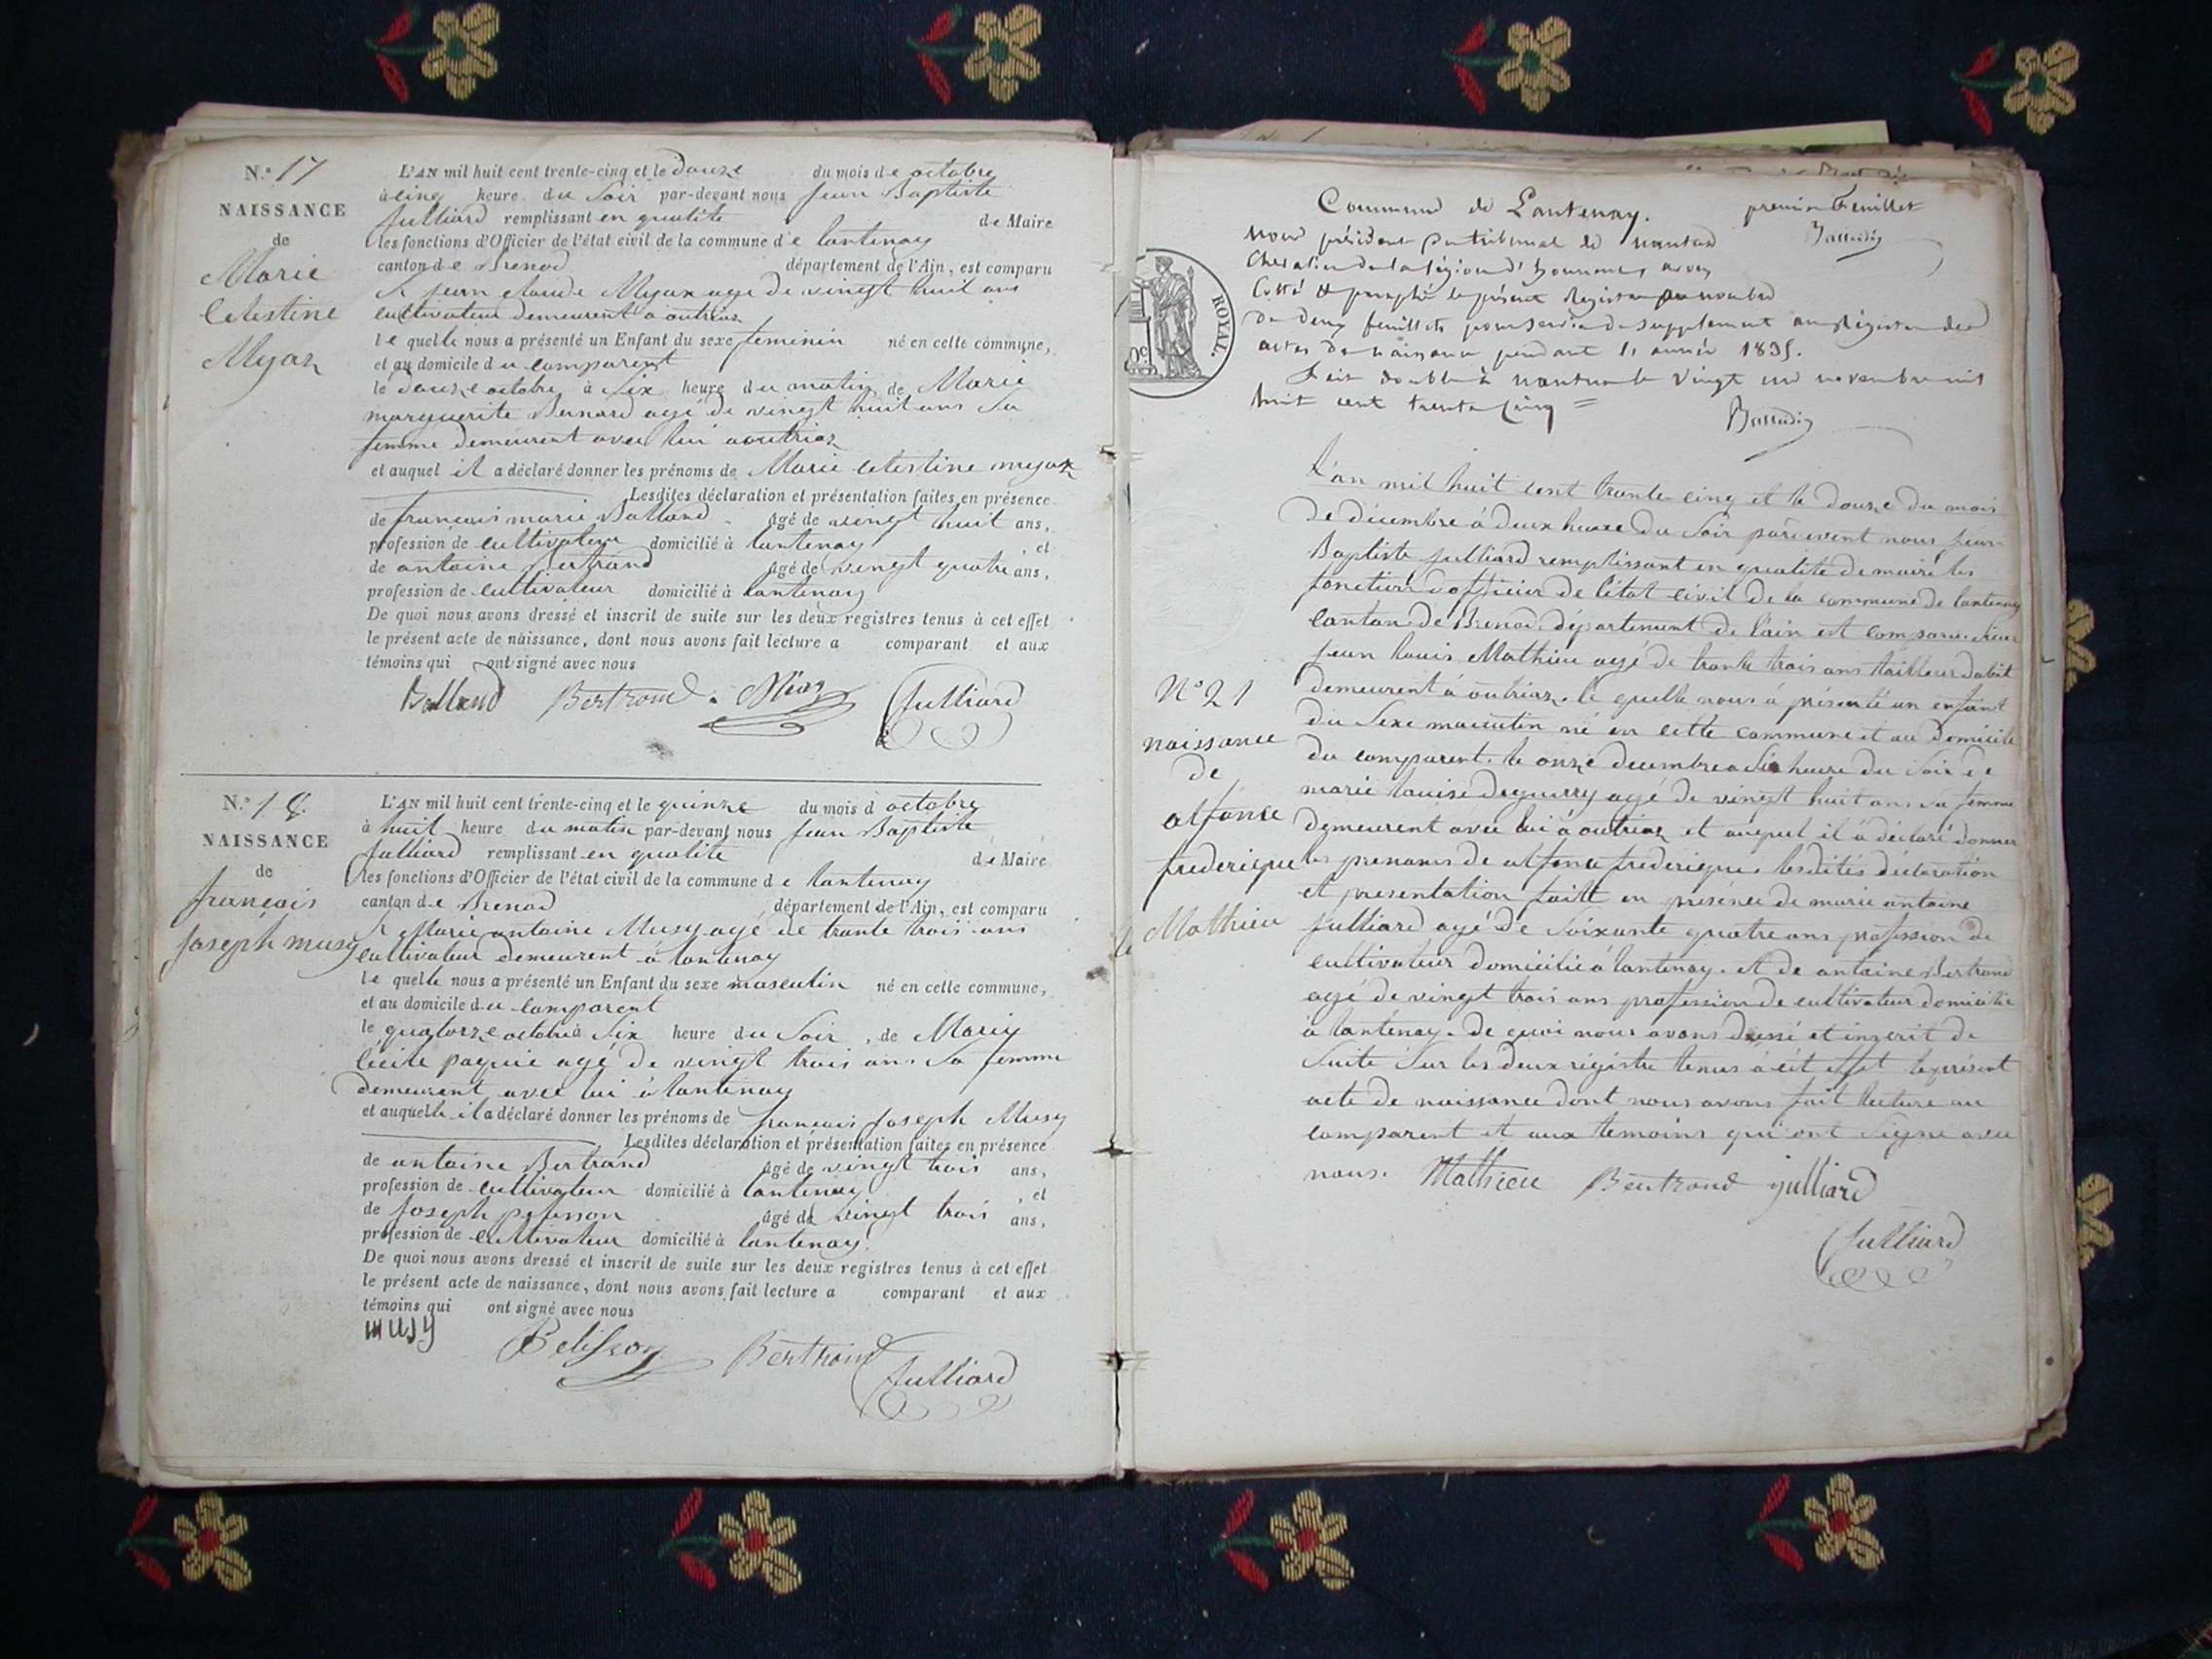 N.º 17
NAISSANCE
de
Marie
Celestine
Myax
L'AN mil huit cent trente-cinq et le douze du mois de octobre
à cinq heure du soir par-devant nous jean Baptiste
julliard remplissant en qualite de Maire
les fonctions d'Officier de l'état civil de la commune de lantenay
canton de Brenod département de l'Ain, est comparu
Sr jean claude Myax age de vingt huit ans
cultivateur demeurent a outriaz
le quelle nous a présenté un Enfant du sexe feminin né en cette commune,
et au domicile du comparent
le douze octobre à Six heure du matin de Marie
marguerite Bernard agé de vingt huit ans Sa
femme demeurent avec lui a outriaz
et auquel il a déclaré donner les prénoms de Marie celestine myax
Lesdites déclaration et présentation faites en présence
de francois marie Balland âgé de vingt huit ans,
profession de cultivateur domicilié à lantenay, et
de antoine Bertrand âgé de vingt quatre ans,
profession de cultivateur domicilié à lantenay
De quoi nous avons dressé et inscrit de suite sur les deux registres tenus à cet effet
le présent acte de naissance, dont nous avons fait lecture a comparant et aux
témoins qui ont signé avec nous
Balland Bertrand Miaz Julliard
N.º 18
NAISSANCE
de
francois
joseph musy
L'AN mil huit cent trente-cinq et le quinze du mois d octobre
à huit heure du matin par-devant nous jean Baptiste
julliard remplissant en qualite de Maire
les fonctions d'Officier de l'état civil de la commune de lantenay
canton de Brenod département de l'Ain, est comparu
Sr Marie antoine Musy agé de trante trois ans
cultivateur demeurent à lantenay
le quelle nous a présenté un Enfant du sexe masculin né en cette commune,
et au domicile du comparent
le quatorze octobre à Six heure du Soir, de Marie
Cécile paquie agé de vingt trois ans Sa femme
demeurent avec lui à lantenay
et auquelle il a déclaré donner les prénoms de francois joseph Musy
Lesdites déclaration et présentation faites en présence
de antoine Bertrand âgé de vingt trois ans,
profession de cultivateur domicilié à lantenay, et
de joseph pelisson âgé de vingt trois ans,
profession de cultivateur domicilié à lantenay
De quoi nous avons dressé et inscrit de suite sur les deux registres tenus à cet effet
le présent acte de naissance, dont nous avons fait lecture a comparant et aux
témoins qui ont signé avec nous
musy Pelisson Bertrand Julliard
Commune de Lantenay. premier feuillet
Nous président du tribunal de nantua
Chevalier de la légion d'honneur avons
Cotté & paraphé le présent Registre au nombre
de deux feuillets pour servir de supplement au Régistre des
actes de naissance pendant l'année 1835.
Fait double à nantua le vingt un novembre mil
huit cent trente cinq =
ROYAL.
L'an mil huit cent trante cinq et le douze du mois
de décembre à deux heure du Soir pardevent nous jean
Baptiste julliard remplissant en qualité de maire les
fonctions d'officier de l'état civil de la commune de lantenay
canton de Brenod département de l'ain est comparu sieur
jean louis Mathieu agé de trante trois ans tailleur dabit
demeurent à outriaz. le quelle nous à présenté un enfant
du Sexe masculin né en cette commune et au domicile
du comparent. le onze decembre a Six heure du Soir de
marie louise Deguerry agé de vingt huit ans sa femme
demeurent avec lui à outriaz et auquel il à déclaré donner
les prenoms de alfonce frederique. lesdites déclaration
et presentation faitt en présence de marie antoine
julliard agé de Soixante quatre ans profession de
cultivateur domicilié à lantenay. et de antoine Bertrand
agé de vingt trois ans profession de cultivateur domicilié
à lantenay. de quoi nous avons dressé et inscrit de
Suite Sur les deux régistre tenus à cét effet le présent
acte de naissance dont nous avons fait lecture au
comparent et aux temoins qui ont Signé avec
nous. Mathieu Bertrand julliard
Julliard
N.º 21
naissance
de
alfonse
frederique
Mathieu